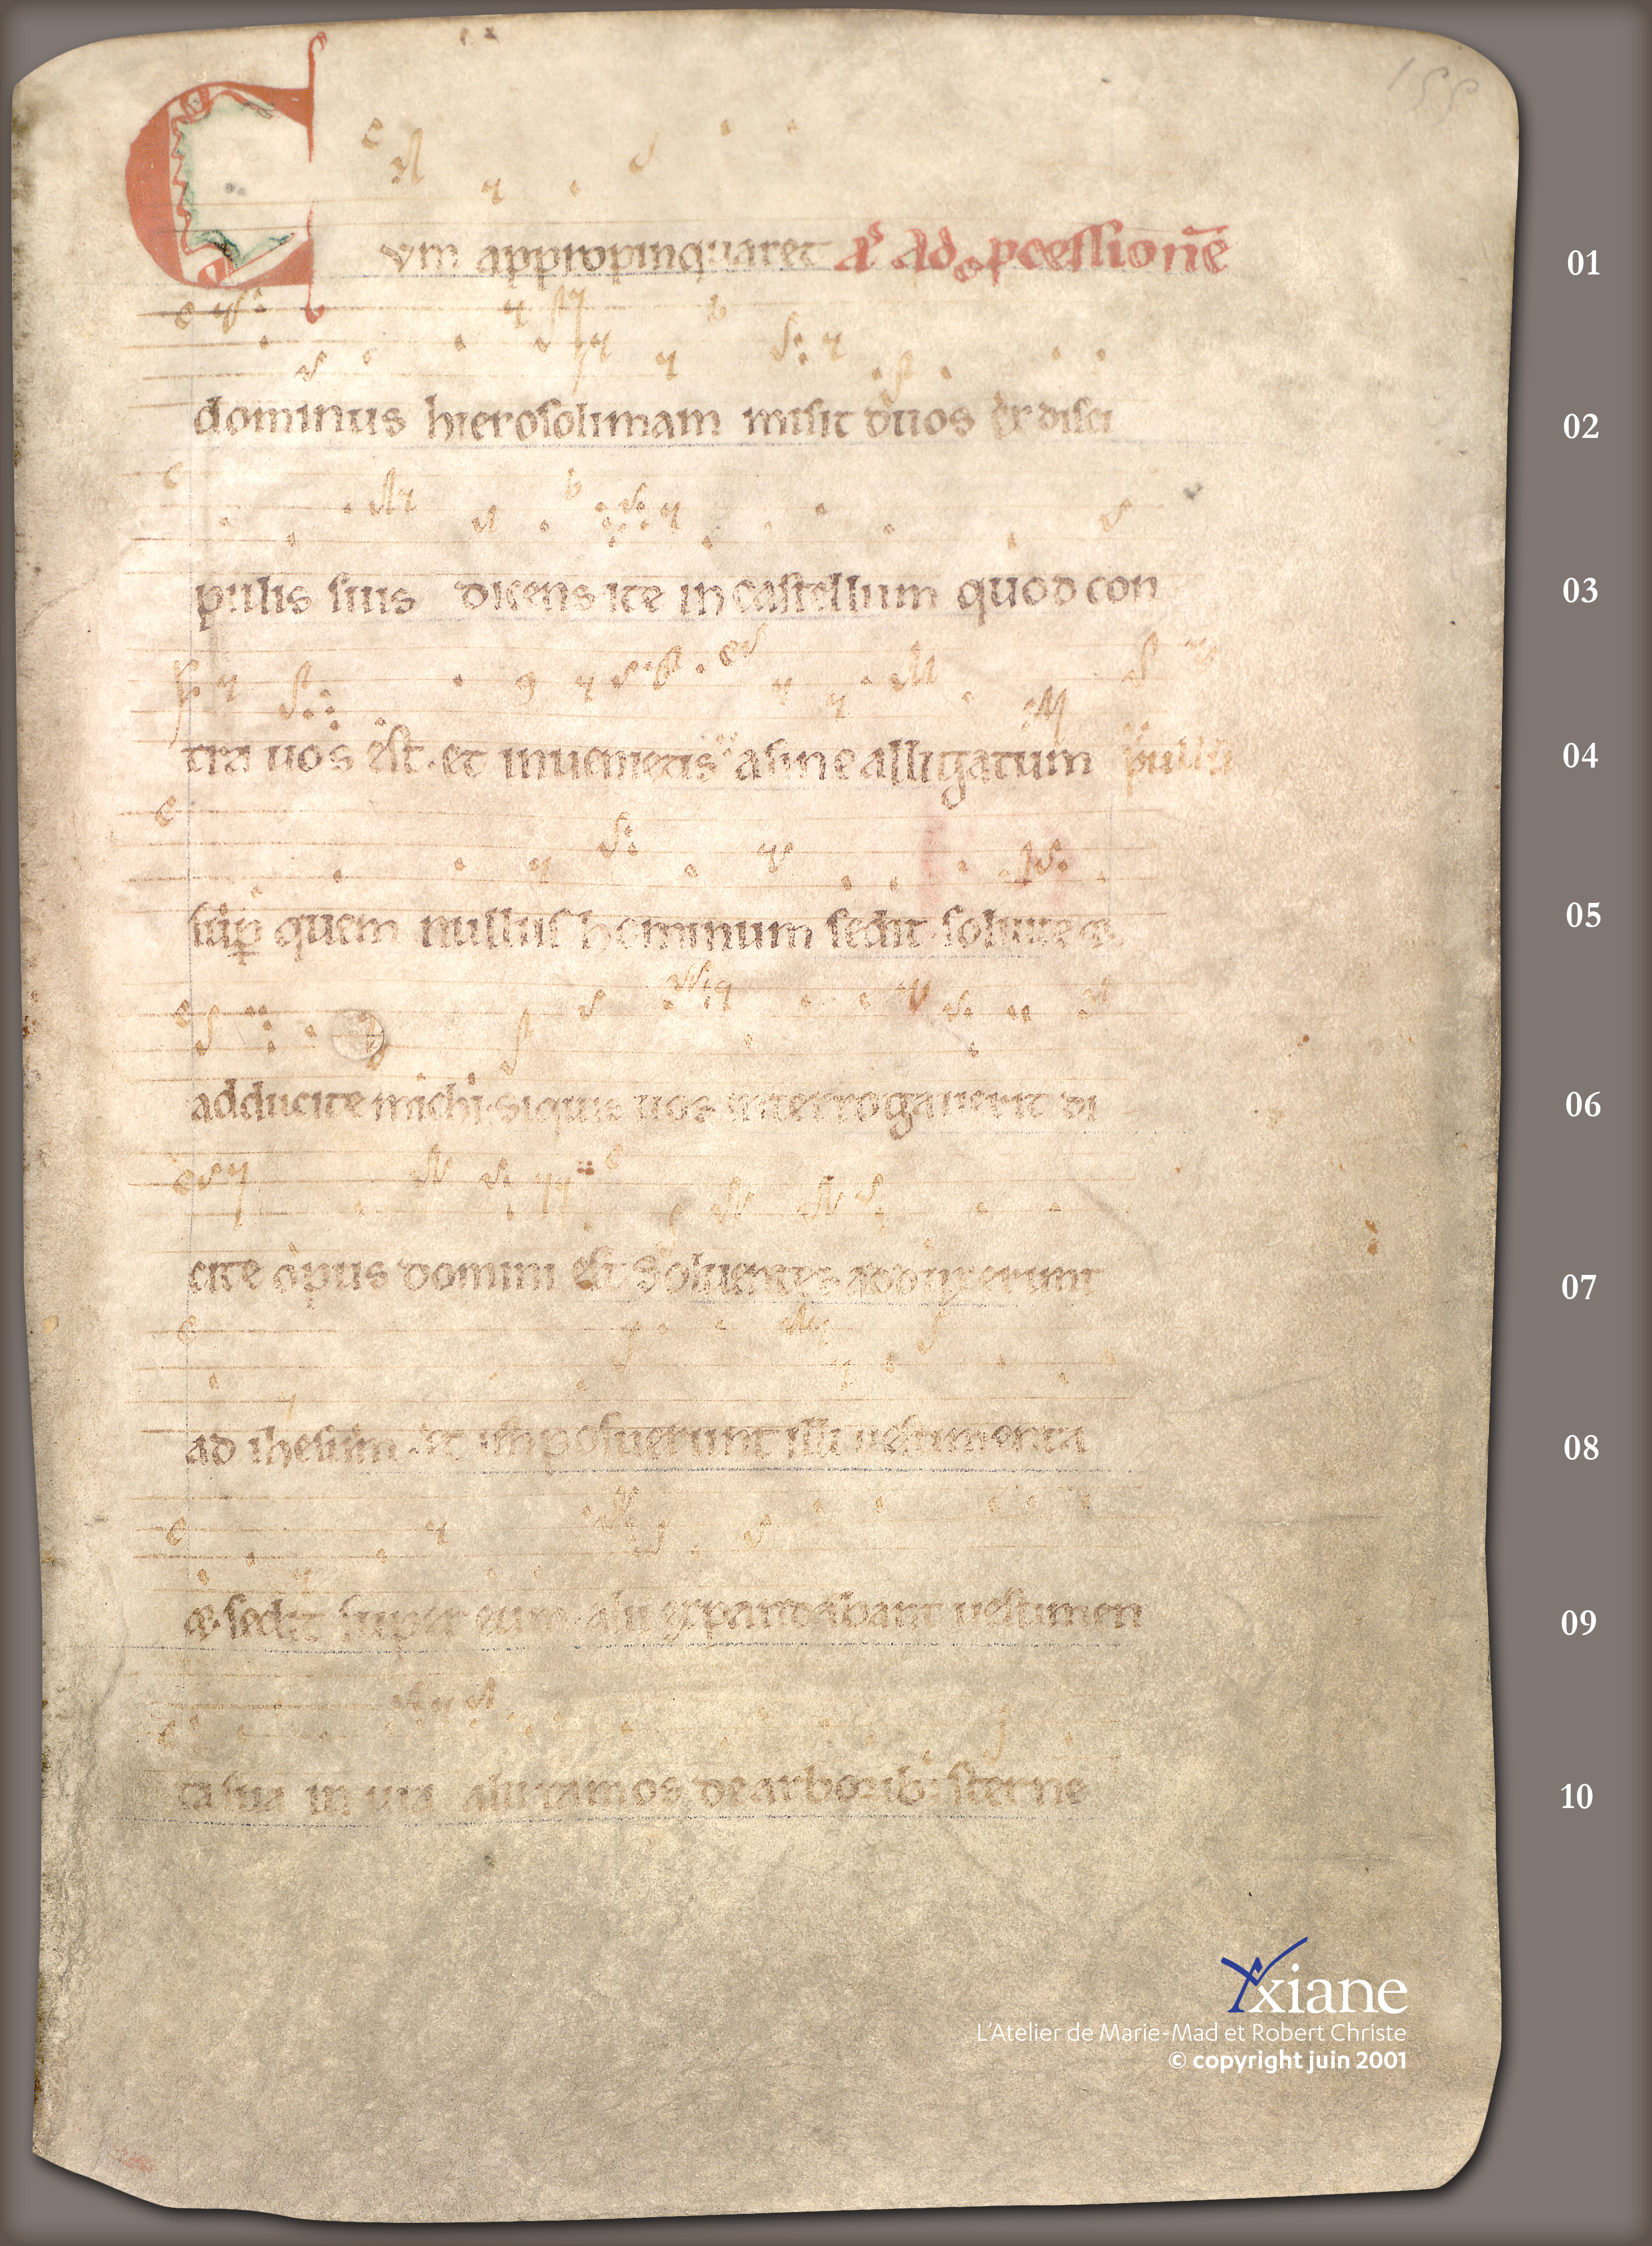 155
Cum appropinquaret Aͥ Ad pcessionē 01
dominus hierosolimam misit duos ex disci 02
pulis suis dicens ite in castellum quod con 03
tra uos est. et inuenietis asine alligatum pullū 04
sup quem nullus hominum sedit. soluite & 05
adducite michi. siquis uos interrogauerit di 06
cite opus domini est Soluentes adduxerunt 07
ad ihesum. et imposuerunt illi uestimenta 08
& sedit super eum. alii expandabant uestimen 09
ta sua in uia alii ramos de arborib: sterne 10
Yxiane
L'Atelier de Marie-Mad et Robert Christe
© copyright juin 2001